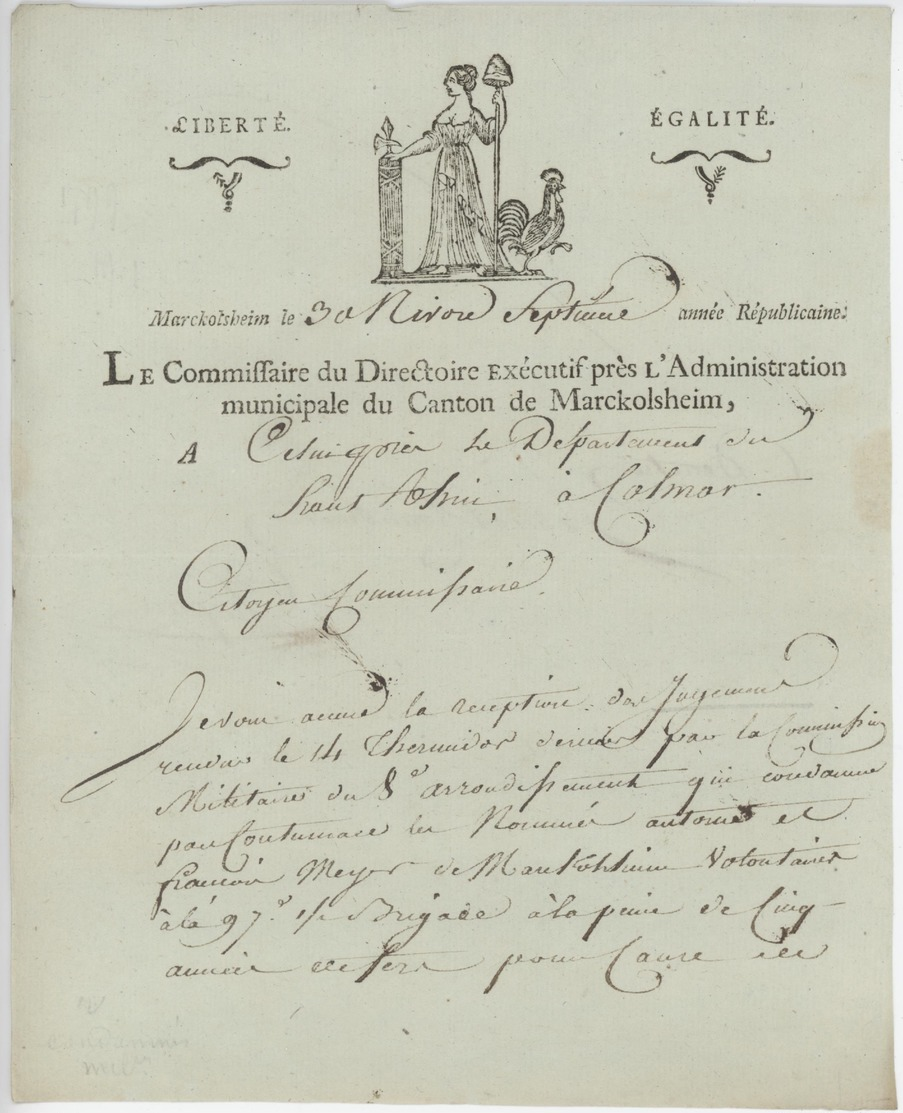 LIBERTÉ.
ÉGALITÉ.
Marckolsheim le 30 Nivose Septième année Républicaine.
LE Commissaire du Directoire exécutif près l'Administration
municipale du Canton de Marckolsheim,
A Celui près le Departement du
haut Rhin, à Colmar.
Citoyen Commissaire.
Je vous accuse la reception du Jugement
rendu le 14 Thermidor dernier par la Commission
Militaire du 8e arrondissement qui condamne
par Coutumace les Nommés antoine et
françois Meyer de Markolsheim Volontaires
à la 97e 1/2 Brigade à la peine de Cinq
années de fers pour Cause de